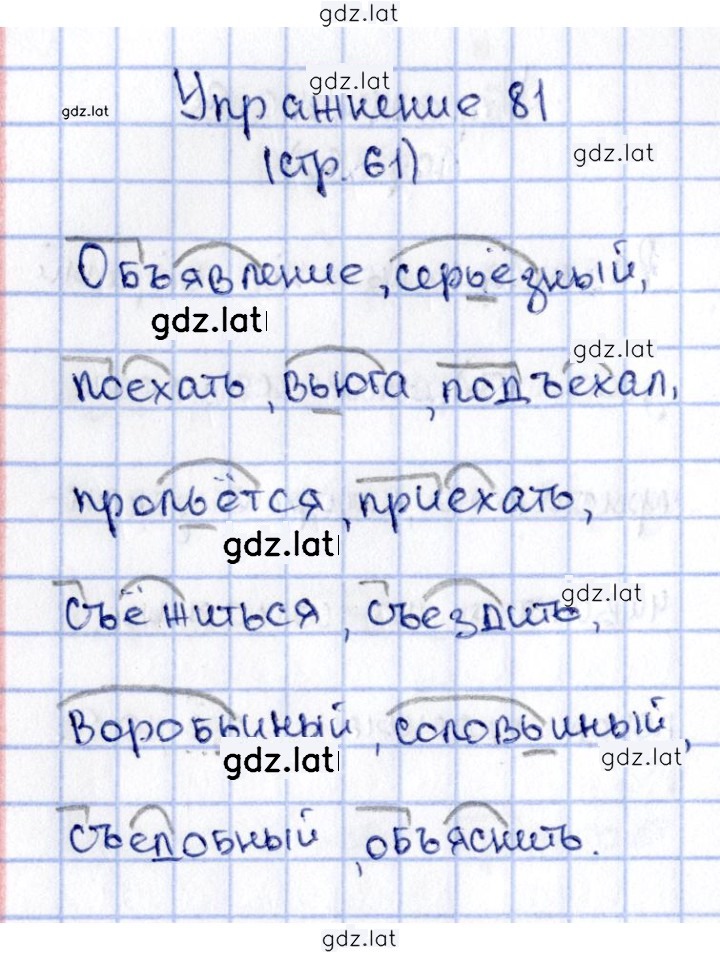 gdz.lat
gdz.lat
gdz.lat
Упражнение 81
gdz.lat
(стр. 61)
Объявление, серьёзный,
gdz.lat
gdz.lat
поехать, вьюга, подъехал,
прольётся, приехать,
gdz.lat
gdz.lat
съёжиться, съездить,
воробьиный, соловьиный,
gdz.lat
gdz.lat
съедобный, объяснить.
gdz.lat